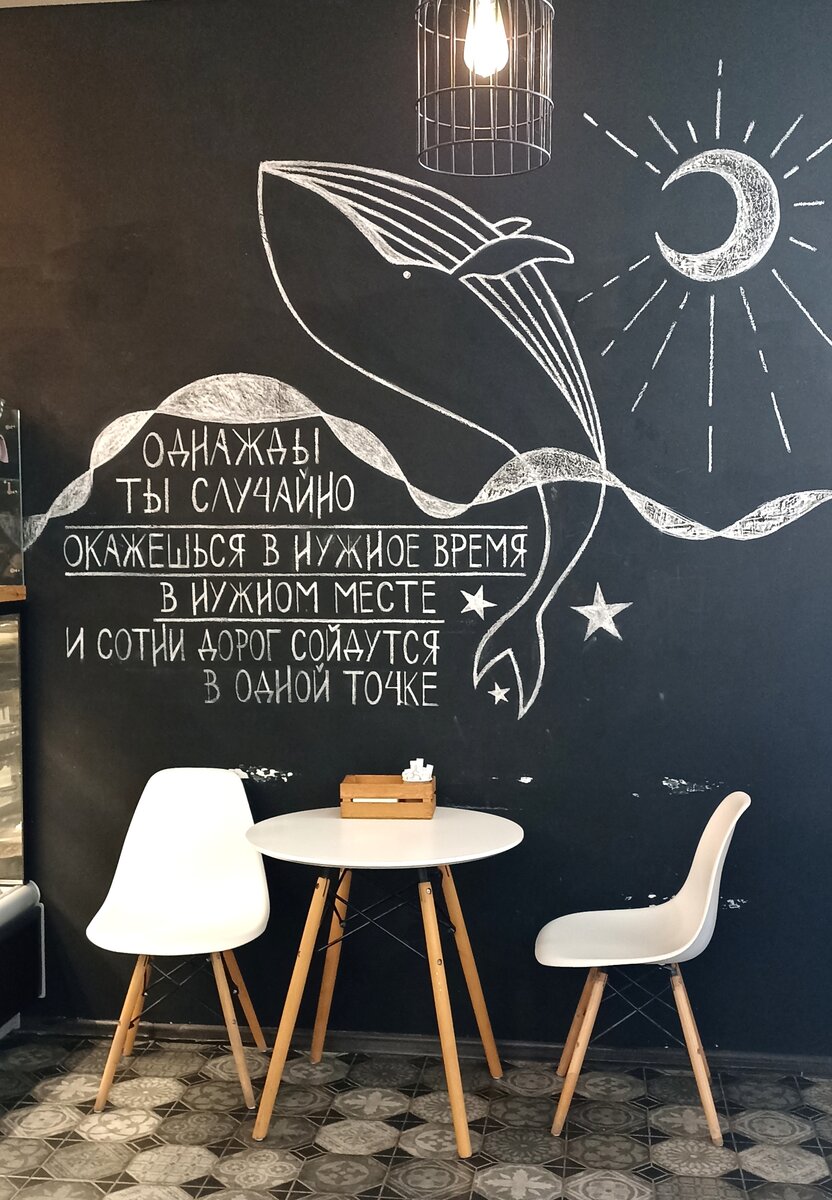 ОДНАЖДЫ
ТЫ СЛУЧАЙНО
ОКАЖЕШЬСЯ В НУЖНОЕ ВРЕМЯ
В НУЖНОМ МЕСТЕ
И СОТНИ ДОРОГ СОЙДУТСЯ
В ОДНОЙ ТОЧКЕ